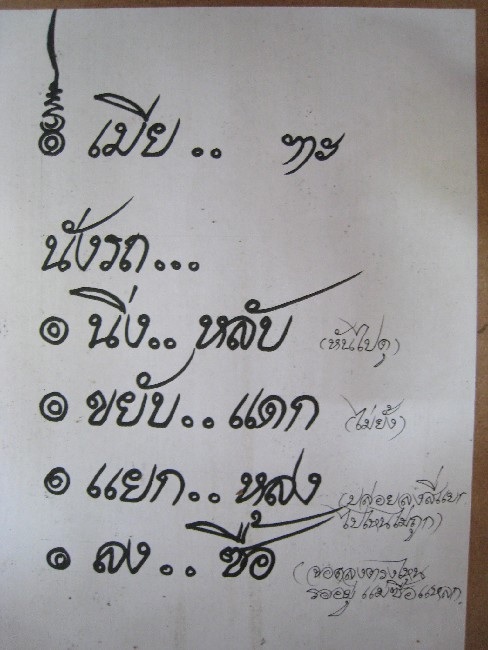 ๏ เมีย.. ๆาะ
นั่งรถ...
๏ นิ่ง.. หลับ (หันไปดุ)
๏ ขยับ.. แดก (ไม่ยั้ง)
๏ แยก.. หลง (ปล่อยลงสี่แยก
ไปไหนไม่ถูก)
๏ ลง.. ซื้อ (จอดลงตรงไหน
รออยู่ แม่ซื้อแหลก)